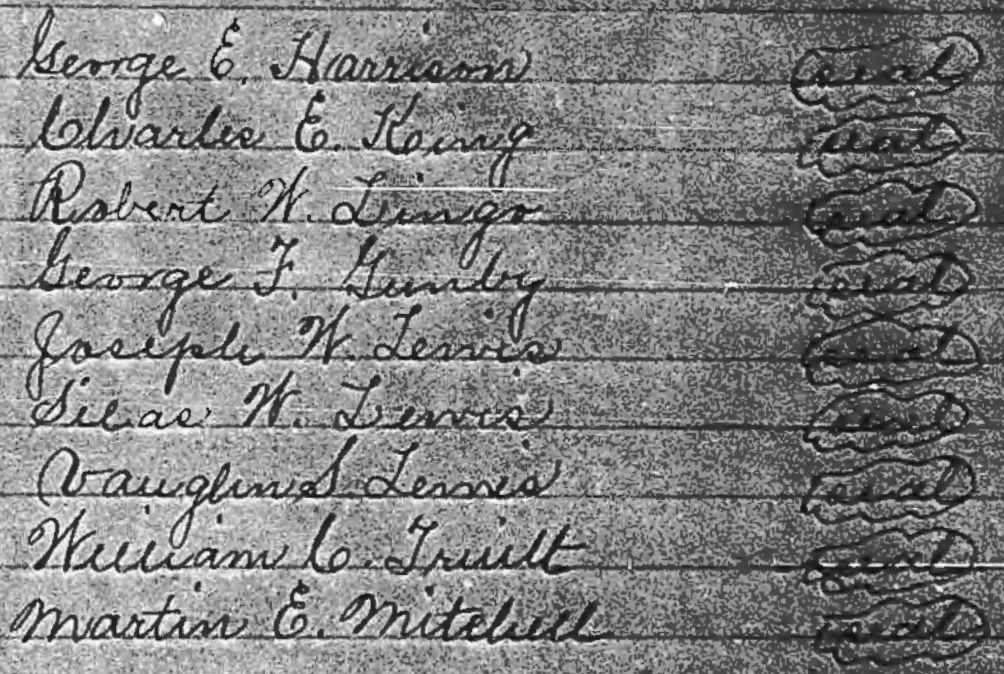 George E. Harrison seal
Charles E. King seal
Robert W. Lingo seal
George F. Gunby seal
Joseph W. Lewis seal
Silas W. Lewis seal
Vaughn S. Lewis seal
William C. Truitt seal
Martin E. Mitchell seal